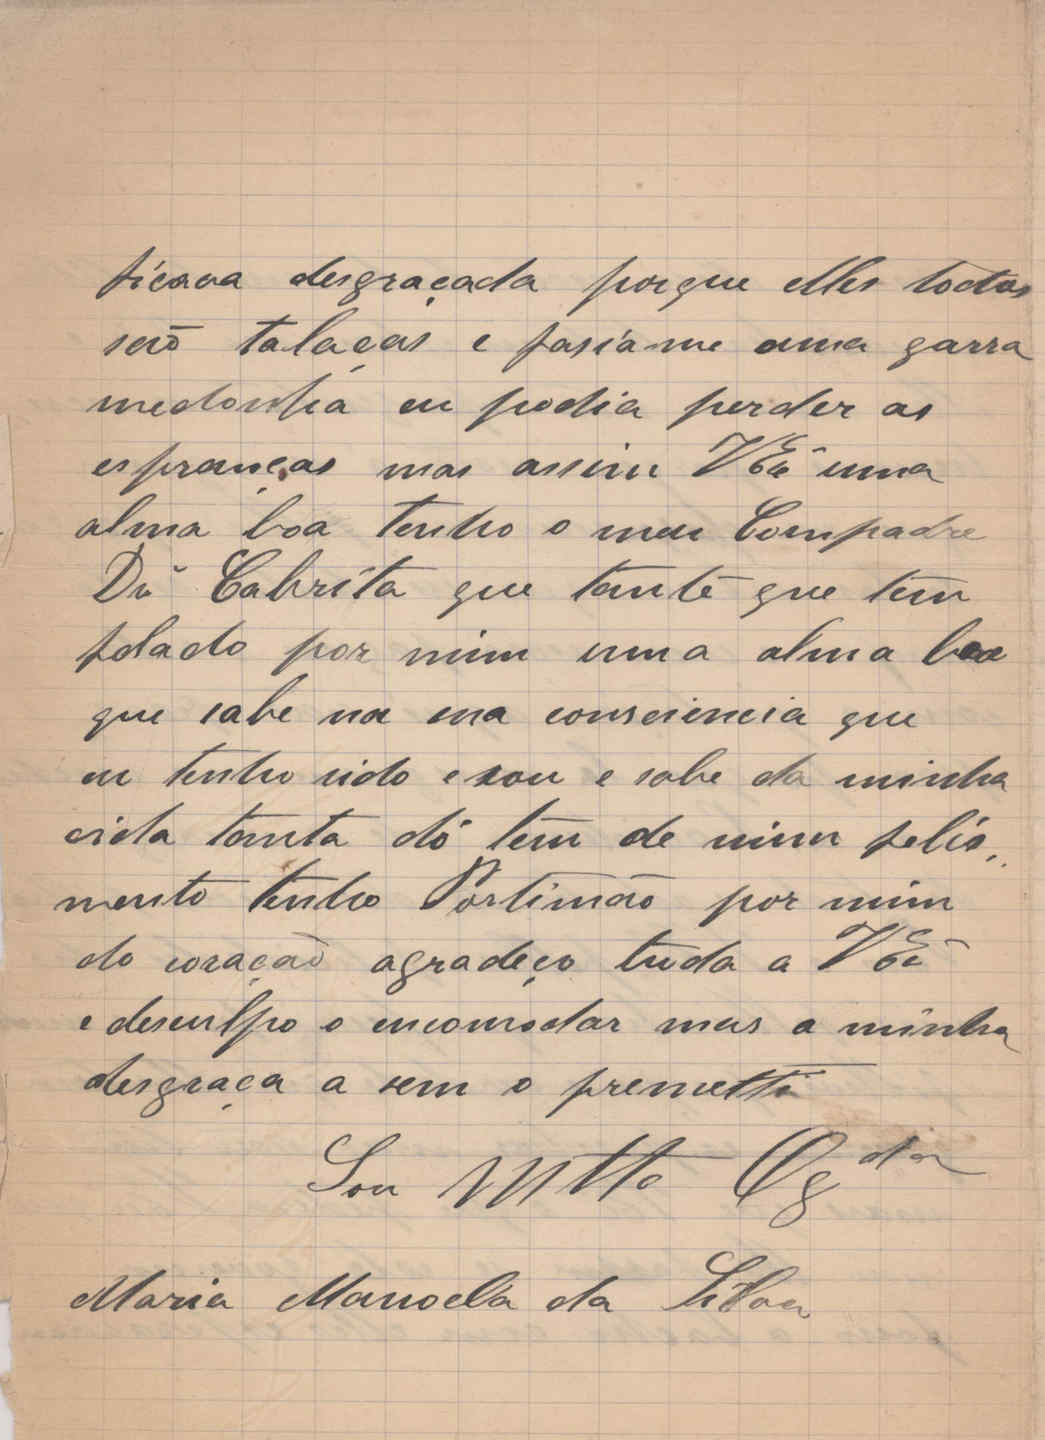 ficava desgraçada porque elles todos
são talaças e fasíame uma garra
medonha eu podia perder as
espranças mas assim VExª uma
alma boa tenho o meu Compadre
Dr Cabrita que tante que tem
folado por mim uma alma boa
que sabe na sua consciencia que
eu tenho sido e sou e sabe da minha
vida tanta dó tem de mim felis,
mente tenho Portimão por mim
do coração agradeço tuda a VExª
e desculpo o encomodar mas a minha
desgraça a sem o premette
Sou Mtto Obgda
Maria Manoela da Silva